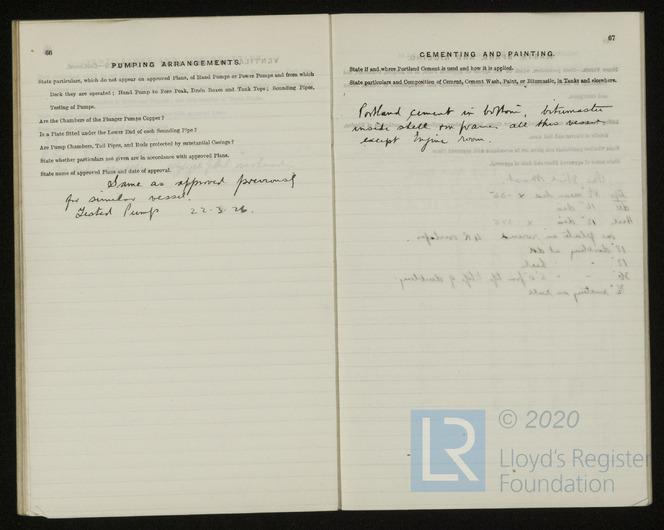 66
PUMPING ARRANGEMENTS.
State particulars, which do not appear on approved Plans, of Hand Pumps or Power Pumps and from which
Deck they are operated; Hand Pump to Fore Peak, Drain Boxes and Tank Tops; Sounding Pipes,
Testing of Pumps.
Are the Chambers of the Plunger Pumps Copper?
Is a Plate fitted under the Lower End of each Sounding Pipe?
Are Pump Chambers, Tail Pipes, and Rods protected by substantial Casings?
State whether particulars not given are in accordance with approved Plans.
State name of approved Plans and date of approval.
Same as approved previously
for similar vessel.
Tested Pumps 22-3-26.
67
CEMENTING AND PAINTING.
State if and where Portland Cement is used and how it is applied.
State particulars and Composition of Cement, Cement Wash, Paint, or Bitumastic, in Tanks and elsewhere.
Portland cement in bottom, bitumastic
inside shell on frames all this vessel
except Engine room.
LR
© 2020
Lloyd's Register
Foundation